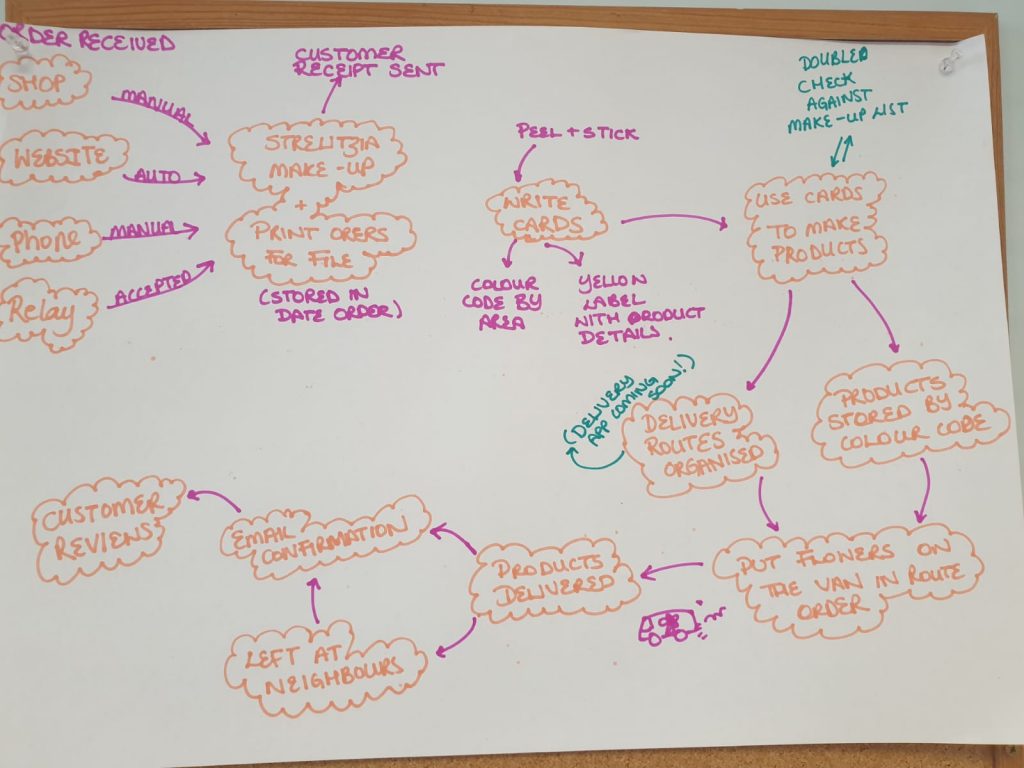 ORDER RECEIVED
SHOP
MANUAL
WEBSITE
AUTO
Phone
MANUAL
Relay
ACCEPTED
CUSTOMER
RECEIPT SENT
STRELITZIA
MAKE-UP
+
PRINT ORERS
FOR FILE
(STORED IN
DATE ORDER)
PEEL + STICK
WRITE
CARDS
COLOUR
CODE BY
AREA
YELLOW
LABEL
WITH PRODUCT
DETAILS.
DOUBLED
CHECK
AGAINST
MAKE-UP LIST
USE CARDS
TO MAKE
PRODUCTS
(DELIVERY
APP COMING
SOON!)
DELIVERY
ROUTES
ORGANISED
PRODUCTS
STORED BY
COLOUR CODE
PUT FLOWERS ON
THE VAN IN ROUTE
ORDER
PRODUCTS
DELIVERED
EMAIL
CONFIRMATION
LEFT AT
NEIGHBOURS
CUSTOMER
REVIEWS